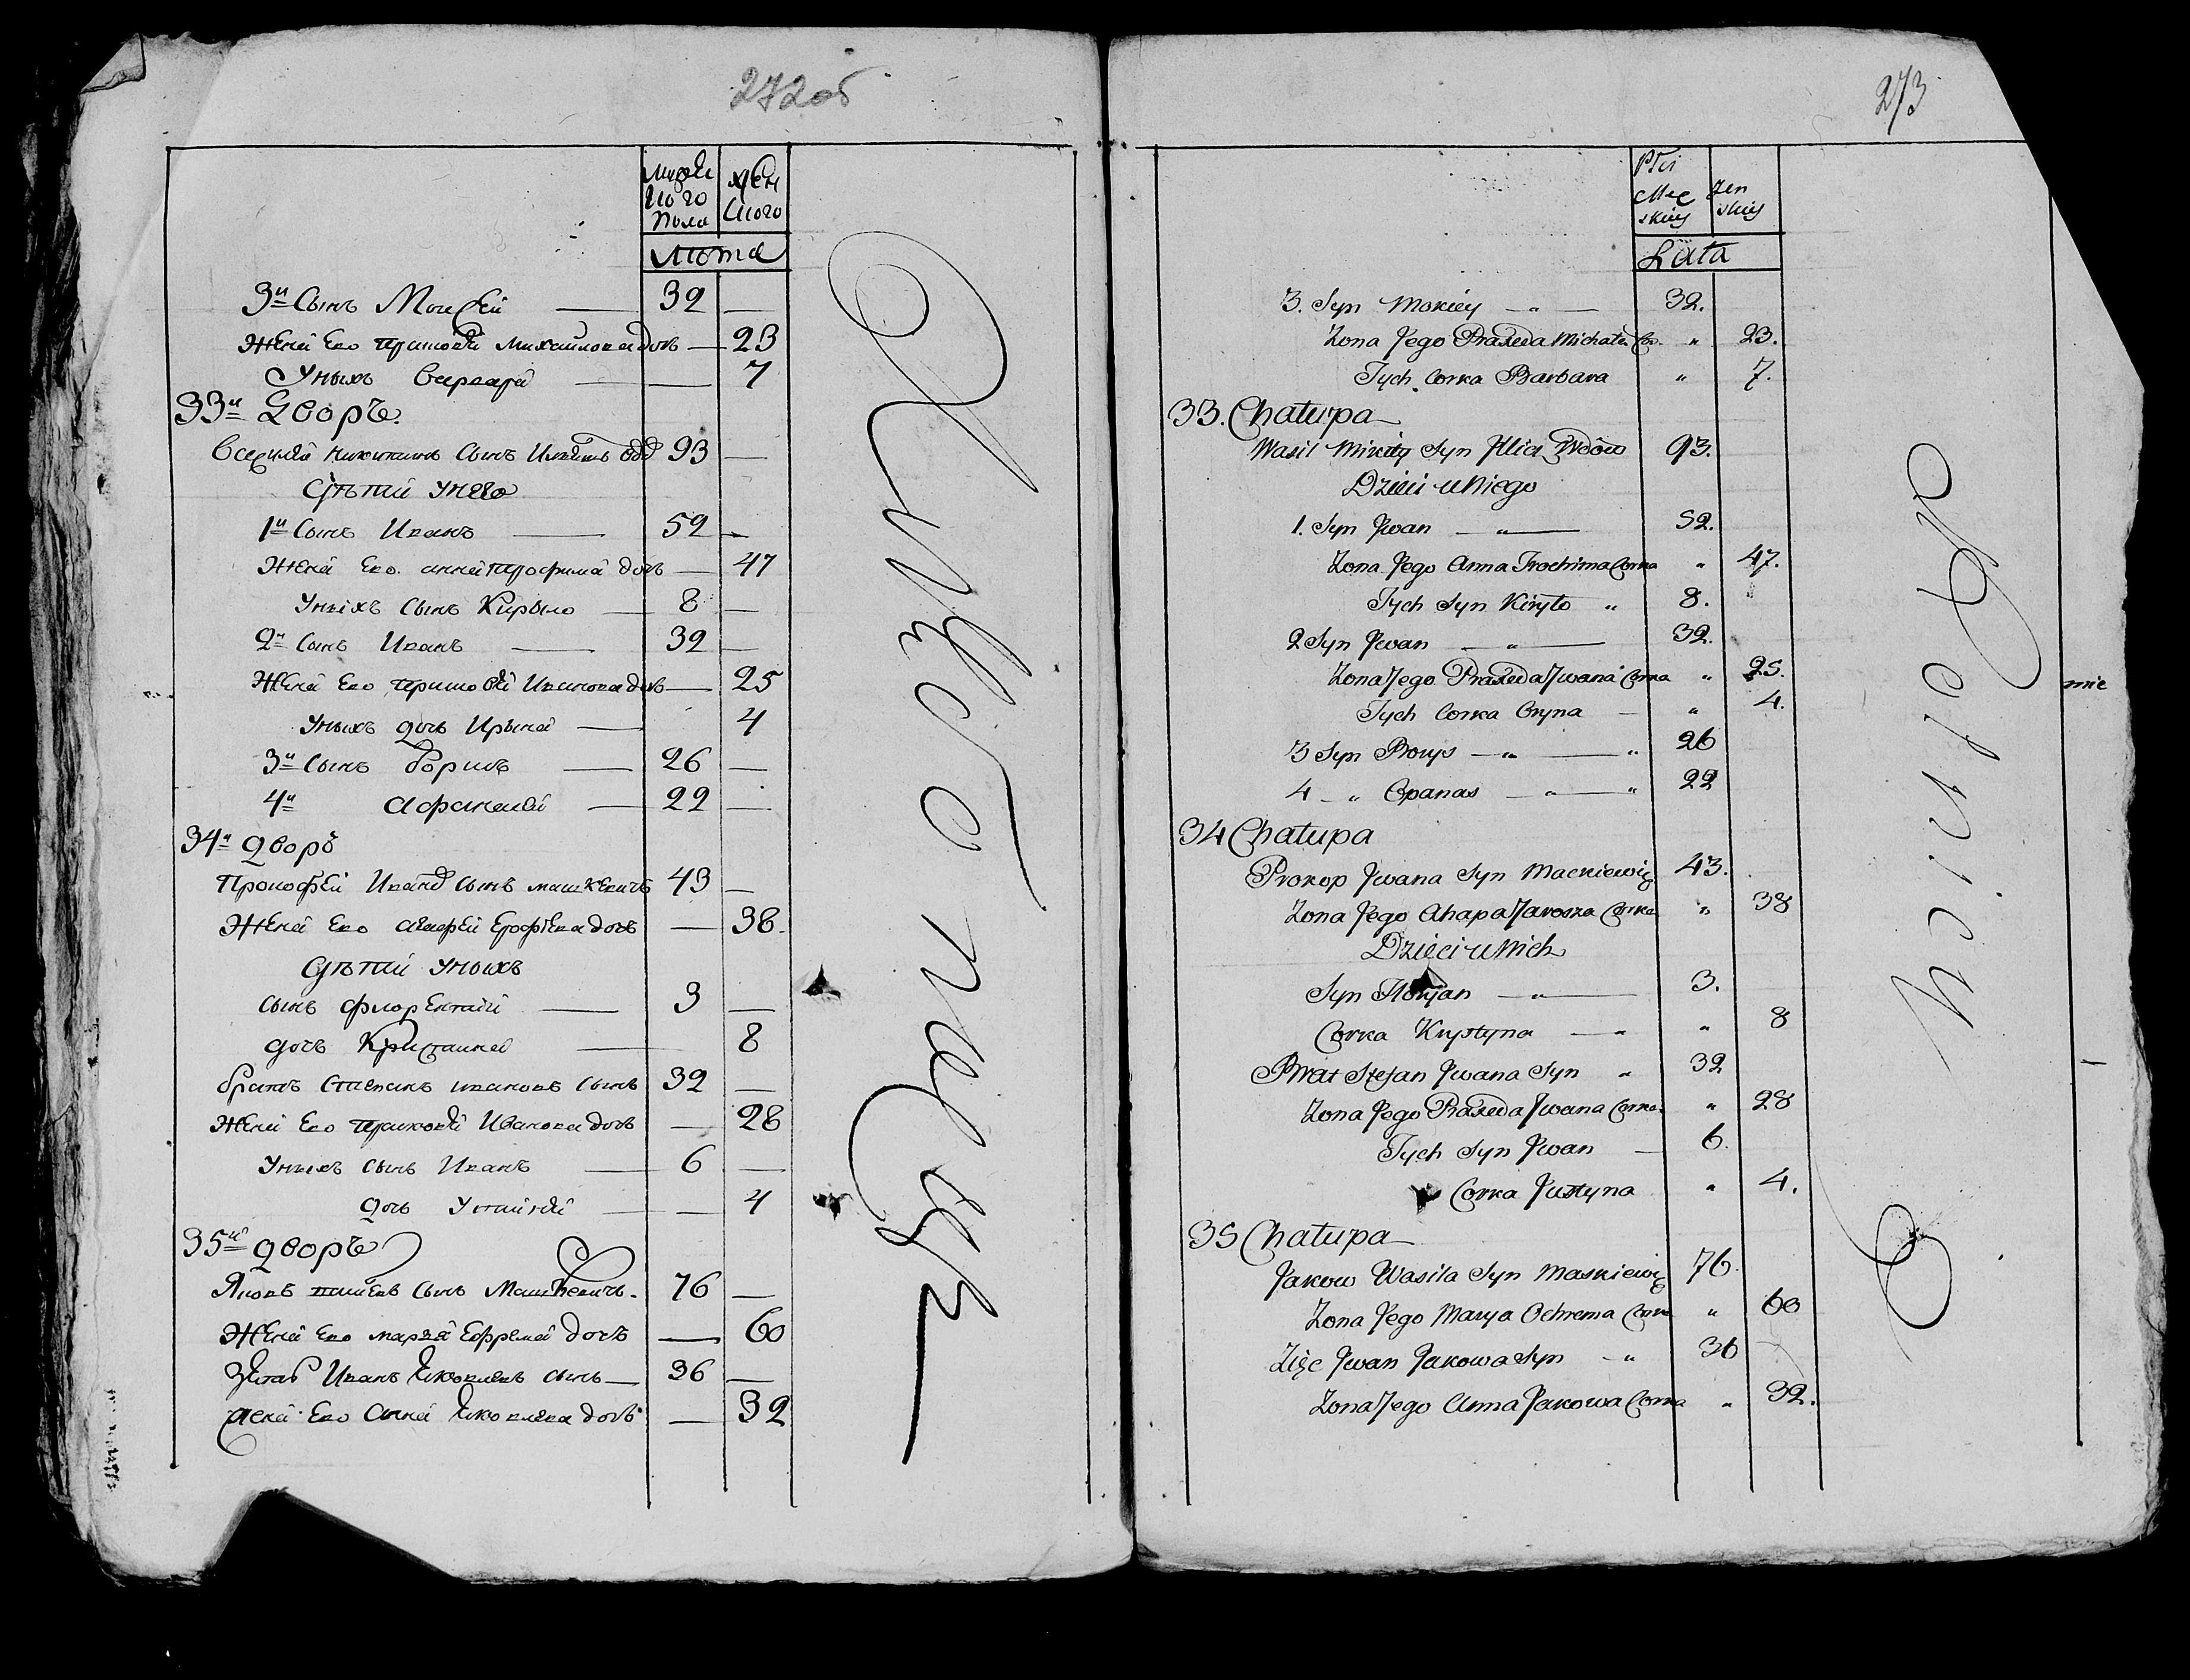 272об
мужескаго пола
женскаго
Лѣта
3й Сынъ Моисей — 32 —
Жена Его Прасковя Михаилова дочь — 23
Уныхъ Варвара — 7
33й Дворъ
Василій Никитинъ Сынъ 93 —
Дѣтии Унего
1й Сынъ Иванъ — 52 —
Жена Его Анна Трофима дочь — 47
Уныхъ Сынъ Кирыло — 8 —
2й Сынъ Иванъ — 32 —
Жена Его Прасковя Иванова дочь — 25
Уныхъ дочь Ирына — 4
3й Сынъ Борисъ — 26 —
4й Афанасій — 22 —
34й Дворъ
Прокофей Ивана Сынъ Машкевичъ 43 —
Жена Его Агафея Ерофѣева дочь — 38
Дѣтии Уныхъ
Сынъ Флорентий — 3 —
дочь Кристина — 8
братъ Стѣпанъ Ивановъ Сынъ 32 —
Жена Его Прасковя Иванова дочь — 28
Уныхъ Сынъ Иванъ — 6 —
дочь Устиня — 4
35й дворъ
Яковъ Сынъ Машкевичъ 76 —
Жена Его Маря Ефрема дочь — 60
Зять Иванъ Яковлевъ Сынъ — 36 —
жена Его Анна Яковлева дочь — 32
273
Płci Męskiey
Żenskiey
Lata
3. Syn Mokiey — „ — 32.
Żona Jego Praxeda Michała Cor. „ 23.
Tych Corka Barbara „ 7.
33. Chałupa
Wasil Mikity Syn Jlicz Wdow 93.
Dzieci u Niego
1. Syn Jwan — „ — 52.
Żona Jego Anna Trochima Corka „ 47.
Tych Syn Kiryło „ 8.
2 Syn Jwan — „ — 32.
Żona Jego Praxeda Jwana Corka „ 25.
Tych Corka Oryna — „ 4.
3 Syn Borys — „ — „ 26
4 — „ Opanas — „ — „ 22
34 Chałupa
Prokop Jwana Syn Mackiewicz 43.
Żona Jego Ahapa Jarosza Corka „ 38
Dzieci u Nich
Syn Floryan — „ — 3.
Corka Krystyna — „ „ 8
Brat Stefan Jwana Syn „ 32
Żona Jego Praxeda Jwana Corka „ 28
Tych Syn Jwan — 6.
Corka Justyna „ 4.
35 Chałupa
Jakow Wasila Syn Maskiewicz 76.
Żona Jego Marya Ochrema Corka „ 60
Zięc Jwan Jakowa Syn — „ 36
Żona Jego Anna Jakowa Corka „ 32.